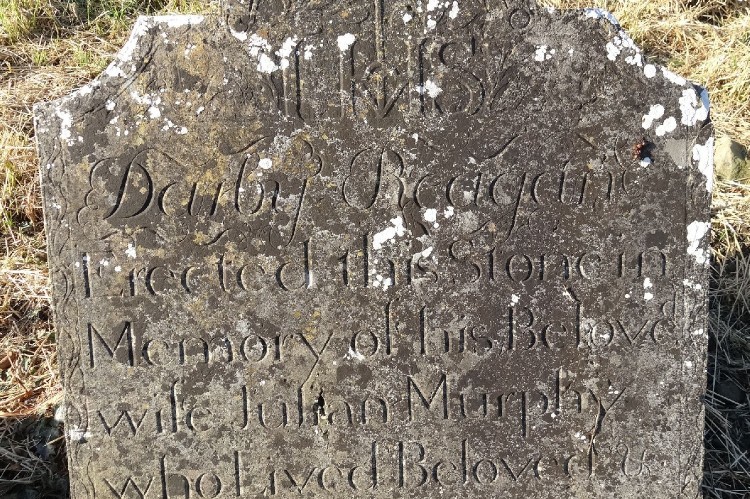 IHS
Darby Reagan
Erected this Stone in
Memory of his Beloved
wife Julian Murphy
who Lived Beloved &